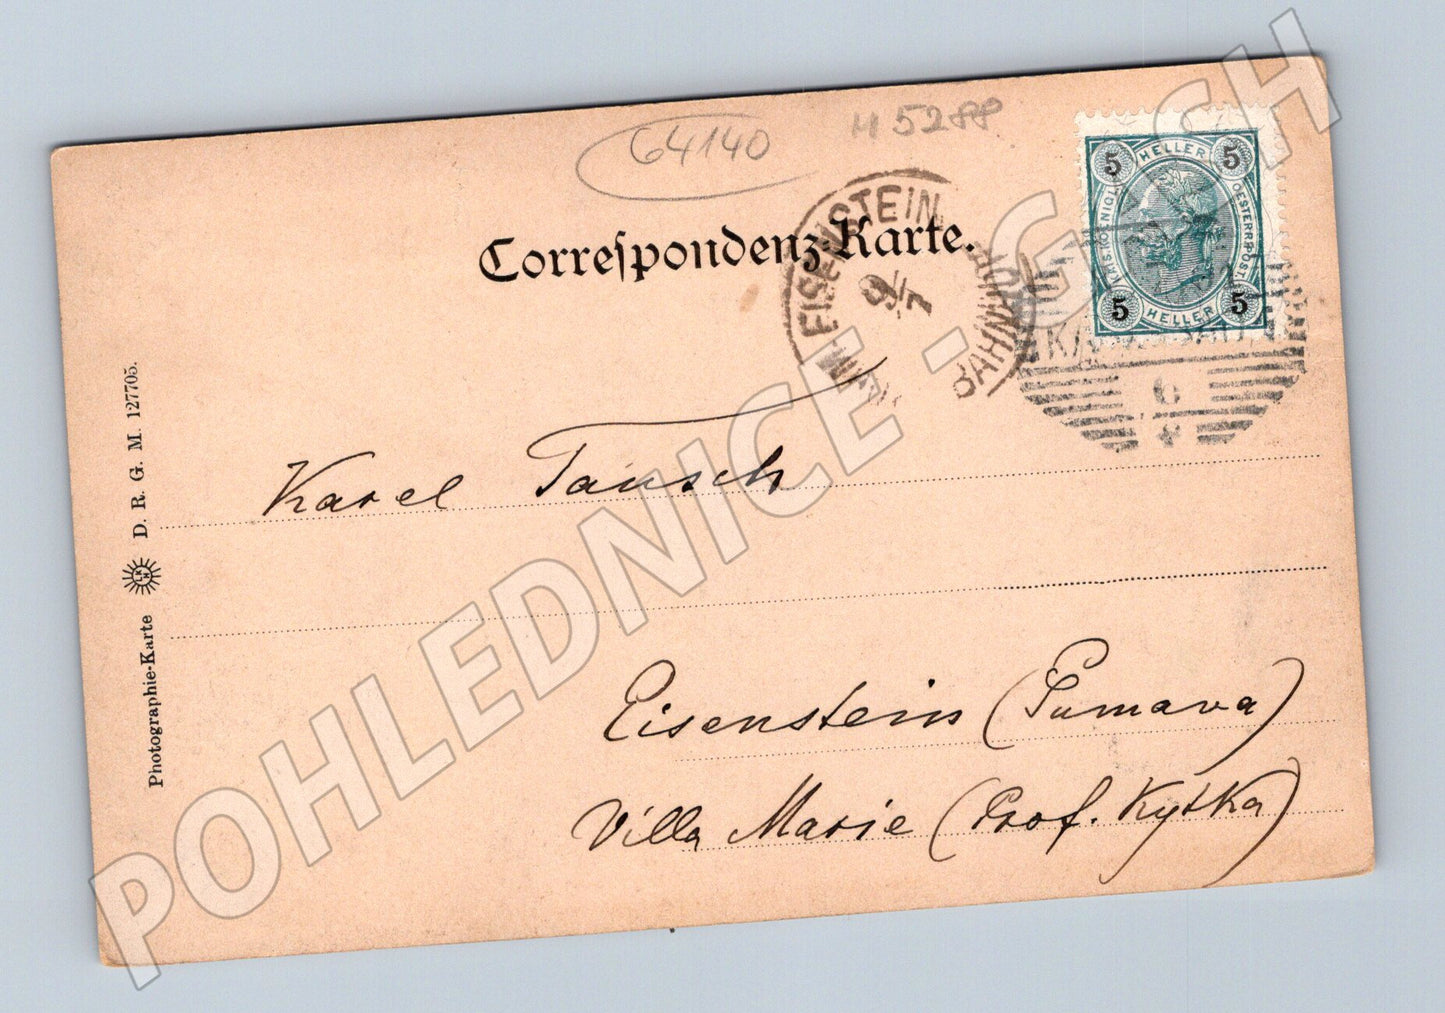 64140
M 5288
Correspondenz-Karte.
EISENSTEIN
BAHNHOF
9/7
5 HELLER 5
KAIS. KOENIGL.
OESTERR. POST.
5 HELLER 5
6
Karel Tausch
Eisenstein (Šumava)
Villa Marie (Prof. Kytka)
Photographie-Karte D. R. G. M. 127705.
POHLEDNICE - G CH